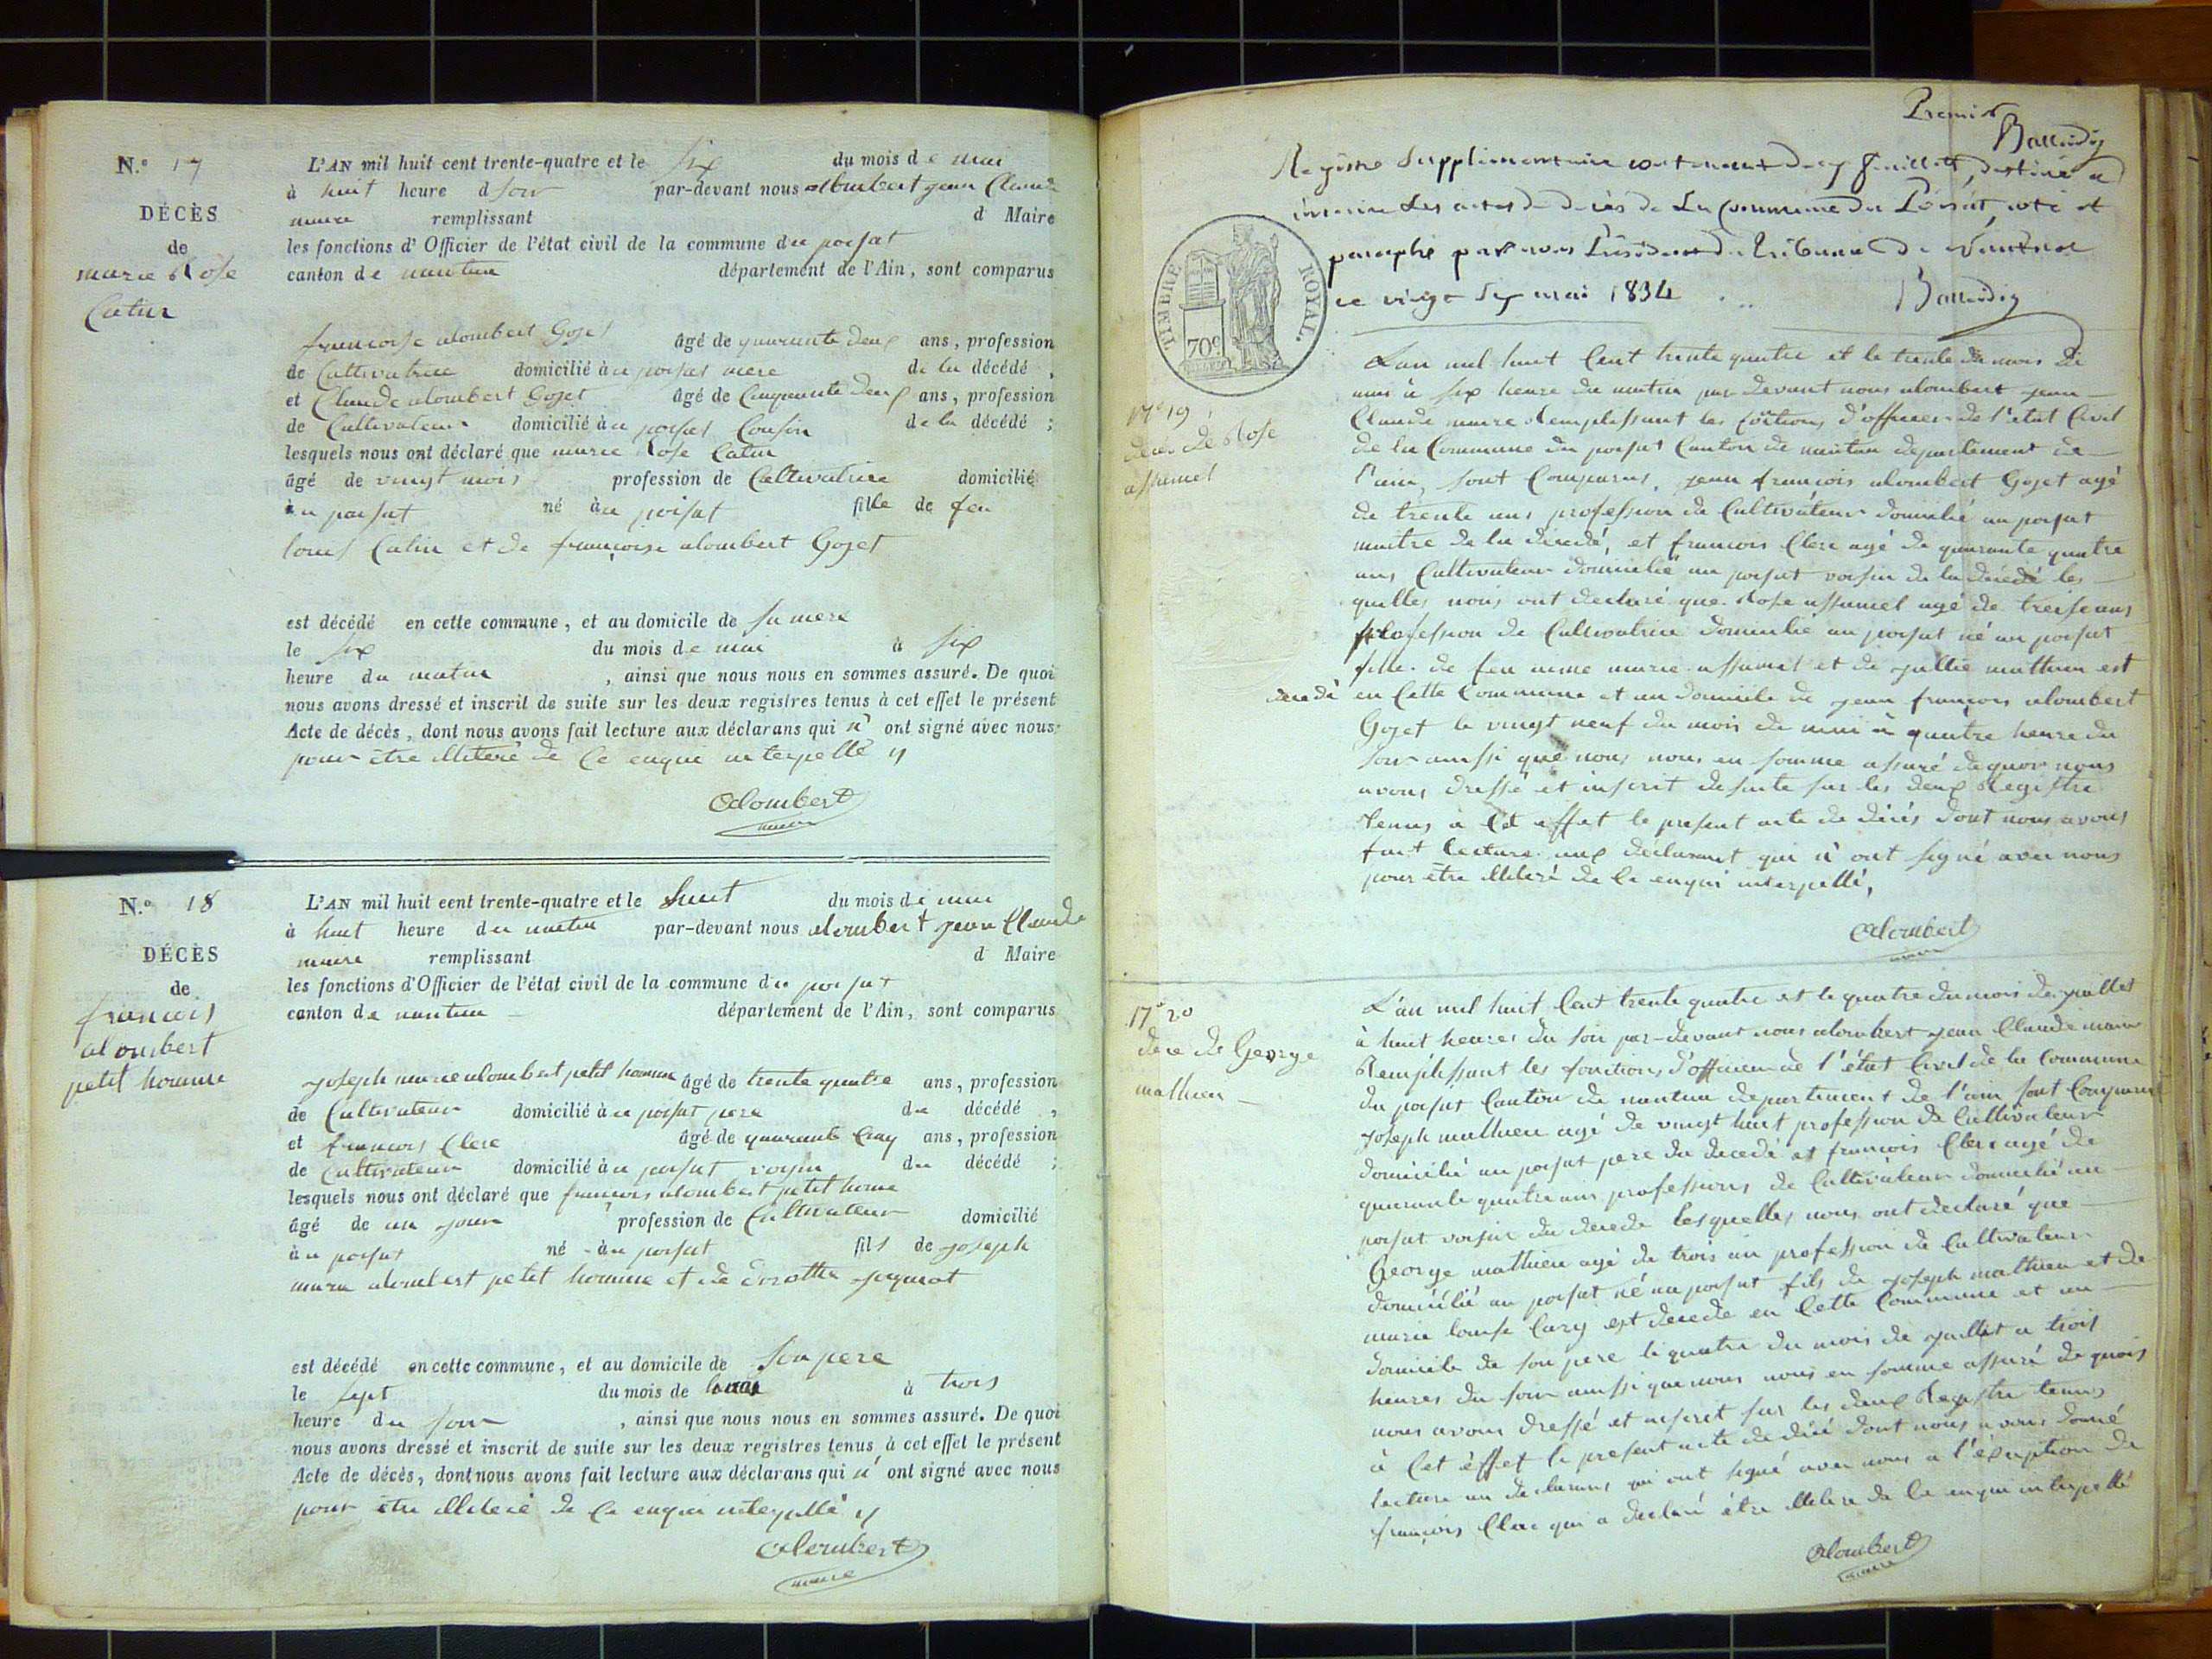 N.° 17
DÉCÈS
de
marie Rose
Catin
L'AN mil huit cent trente-quatre et le six du mois de mai
à huit heure d soir par-devant nous alombert jean Claude
maire remplissant d Maire
les fonctions d' Officier de l'état civil de la commune du poisat
canton de nantua département de l'Ain, sont comparus
francoise alombert Goget âgé de quarante deux ans, profession
de Cultivatrice domicilié àu poisat mere de la décédé,
et Claude alombert Goget âgé de Cinquante deux ans, profession
de Cultivateur domicilié àu poisat Cousin de la décédé ;
lesquels nous ont déclaré que marie Rose Catin
âgé de vingt mois profession de Cultivatrice domicilié
àu poisat né àu poisat fille de feu
louis Catin et de françoise alombert Goget
est décédé en cette commune, et au domicile de sa mere
le six du mois de mai à six
heure du matin , ainsi que nous nous en sommes assuré. De quoi
nous avons dressé et inscrit de suite sur les deux registres tenus à cet effet le présent
Acte de décès, dont nous avons fait lecture aux déclarans qui n' ont signé avec nous
pour être illiteré de Ce enqui interpellé
alombert
maire
N.° 18
DÉCÈS
de
francois
alombert
petit homme
L'AN mil huit cent trente-quatre et le huit du mois de mai
à huit heure du matin par-devant nous alombert jean Claude
maire remplissant d Maire
les fonctions d'Officier de l'état civil de la commune du poisat
canton de nantua département de l'Ain, sont comparus
joseph marie alombert petit homme âgé de trente quatre ans, profession
de Cultivateur domicilié àu poisat pere du décédé ,
et francois Clerc âgé de quarante Cinq ans, profession
de Cultivateur domicilié àu poisat voisin du décédé ;
lesquels nous ont déclaré que françois alombert petit home
âgé de un jour profession de Cultivateur domicilié
àu poisat né àu poisat fils de joseph
marie alombert petit homme et de dorotthe
est décédé en cette commune, et au domicile de son pere
le sept du mois de mai à trois
heure du soir , ainsi que nous nous en sommes assuré. De quoi
nous avons dressé et inscrit de suite sur les deux registres tenus à cet effet le présent
Acte de décès, dont nous avons fait lecture aux déclarans qui n' ont signé avec nous
pour être illiteré de Ce enqui interpellé
alombert
maire
Premier
Registre Supplémentaire contenant deux feuillets, destiné a
inscrire les actes de décès de La Commune du Poisat, coté et
paraphé par nous Président du Tribunal de Nantua
ce vingt six mai 1834
TIMBRE ROYAL.
70c
N° 19
décè de Rose
assumel
L'an mil huit Cent trente quatre et le trente du mois de
mai à six heure du matin par devant nous alombert jean
Claude maire Remplissant les foitions d'officier de l'état Civil
de la Commune du poisat Canton de nantua departement de
l'ain, sont Comparus, jean françois alombert Goget agé
de trente ans profession de Cultivateur domicilié au poisat
maitre de la décédé, et francois Clerc agé de quarante quatre
ans Cultivateur domicilié au poisat voisin de la décédé les
quelles nous ont declaré que Rose assumel agé de treise ans
profession de Cultivatrice domicilié au poisat né au poisat
fille de feu aime marie assumel et de jullie mathieu est
decedé en Cette Commune et au domicile de jean françois alombert
Goget le vingt neuf du mois de mai à quatre heure du
soir aussi que nous nous en somme assuré dequoi nous
avons dressé et inscrit desuite sur les deux Registre
tenus a Cet effet le present acte de décés dont nous avons
fait lecture aux déclarant qui n' ont signé avec nous
pour être illiteré de Ce enqui interpellé,
alombert
maire
N° 20
déce de George
mathieu
L'an mil huit Cent trente quatre et le quatre du mois de juillet
à huit heures du soir par-devant nous alombert jean Claude maire
Remplissant les fonctions d'officier de l'état Civil de la Commune
du poisat Canton de nantua departement de l'ain sont Comparus
joseph mathieu agé de vingt huit profession de Cultivateur
domicilié au poisat pere du decedé et francois Clerc agé de
quarante quatre ans professions de Cultivateur domicilié au
poisat voisin du decede lesquelles nous ont declaré que
George mathieu agé de trois an profession de Cultivateur
domicilié au poisat né au poisat fils de joseph mathieu et de
marie louise Cary est decede en Cette Commune et au
domicile de son pere le quatre du mois de juillet a trois
heures du soir aussi que nous nous en somme assuré de quois
nous avons dressé et inscrit sur les deux Registre tenus
à Cet èffet le present acte de décé dont nous avons donné
lecture au declarans qui ont signé avec nous a l'éxception de
françois Clerc qui a declaré être illitere de Ce enqui interpellé
alombert
maire